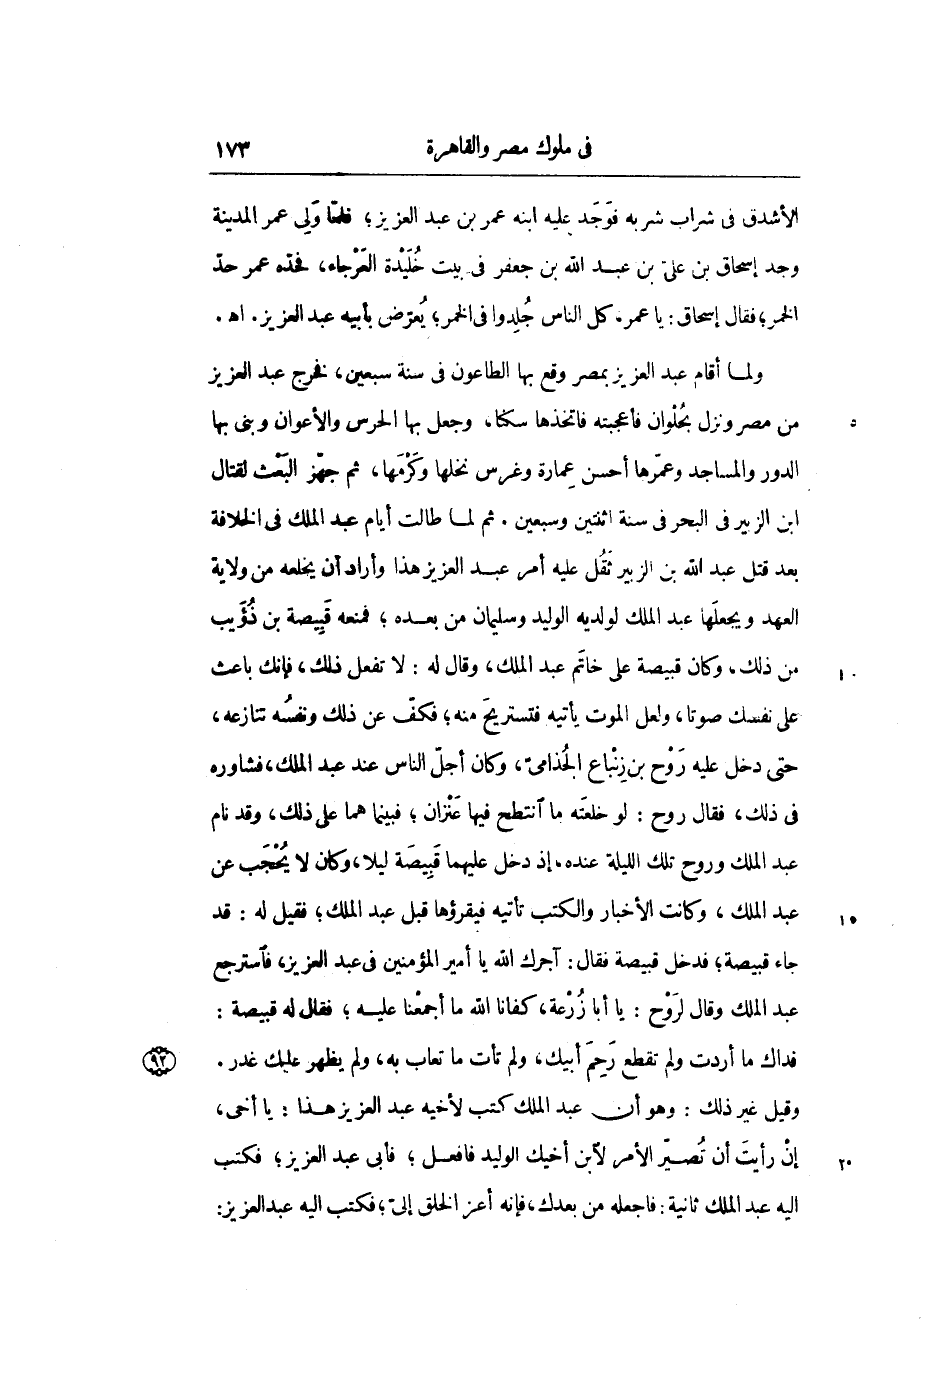 فى ملوك مصر والقاهرة ١٧٣
الأشدق فى شراب شربه فوَجَد عليه ابنه عمر بن عبد العزيز؛ فلمّا وَلِى عمر المدينة
وجد إسحاق بن علىّ بن عبد الله بن جعفر فى بيت خُلَيْدة العَرْجاء، فحدّه عمر حدّ
الخمر؛ فقال إسحاق: يا عمر، كل الناس جُلِدوا فى الخمر؛ يُعرّض بأبيه عبد العزيز. اهـ.
ولما أقام عبد العزيز بمصر وقع بها الطاعون فى سنة سبعين، فخرج عبد العزيز
من مصر ونزل بحُلْوان فأعجبته فاتخذها سكنا، وجعل بها الحرس والأعوان وبنى بها
٥
الدور والمساجد وعمّرها أحسن عمارة وغرس نخلها وكَرْمَها، ثم جهّز البَعْث لقتال
ابن الزبير فى البحر فى سنة اثنتين وسبعين . ثم لما طالت أيام عبد الملك فى الخلافة
بعد قتل عبد الله بن الزبير ثَقُل عليه أمر عبد العزيز هذا وأراد أن يخلعه من ولاية
العهد ويجعلَها عبد الملك لولديه الوليد وسليمان من بعده ؛ فمنعه قَبِيصة بن ذُؤَيب
من ذلك، وكان قبيصة على خاتَم عبد الملك، وقال له : لا تفعل ذلك، فإنك باعث
١٠
على نفسك صوتا، ولعل الموت يأتيه فتستريحَ منه؛ فكفّ عن ذلك ونفسُه تنازعه،
حتى دخل عليه رَوْح بن زِنْباع الجُذامىّ، وكان أجلّ الناس عند عبد الملك، فشاوره
فى ذلك، فقال روح : لو خلعتَه ما ٱنتطح فيها عَنْزان ؛ فبينما هما على ذلك، وقد نام
عبد الملك وروح تلك الليلة عنده، إذ دخل عليهما قَبِيصَة ليلا، وكان لا يُحْجَب عن
عبد الملك ، وكانت الأخبار والكتب تأتيه فيقرؤها قبل عبد الملك؛ فقيل له : قد
١٥
جاء قبيصة؛ فدخل قبيصة فقال : آجرك الله يا أمير المؤمنين فى عبد العزيز، فٱسترجع
عبد الملك وقال لرَوْح : يا أبا زُرْعة، كفانا الله ما أجمعْنا عليه ؛ فقال له قبيصة :
فداك ما أردت ولم تقطع رَحِمَ أبيك، ولم تأت ما تعاب به، ولم يظهر عليك غدر .
٩٢
وقيل غير ذلك : وهو أن عبد الملك كتب لأخيه عبد العزيز هذا : يا أخى،
إنْ رأيتَ أن تُصيّر الأمر لٱبن أخيك الوليد فافعل ؛ فأبى عبد العزيز؛ فكتب
٢٠
اليه عبد الملك ثانية : فاجعله من بعدك، فإنه أعز الخلق إلىّ؛ فكتب اليه عبد العزيز: